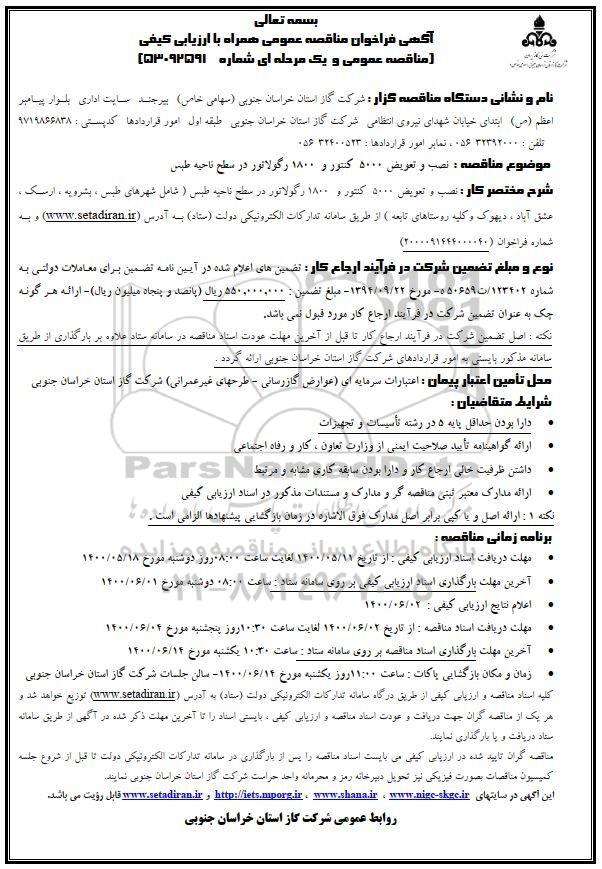 بسمه تعالی
آگهی فراخوان مناقصه عمومی همراه با ارزیابی کیفی
(مناقصه عمومی و یک مرحله ای شماره ۵۳۰۹۲۵۹۱)
شرکت ملی گاز ایران
نام و نشانی دستگاه مناقصه گزار : شرکت گاز استان خراسان جنوبی (سهامی خاص) بیرجند سایت اداری بلوار پیامبر
اعظم (ص) ابتدای خیابان شهدای نیروی انتظامی شرکت گاز استان خراسان جنوبی طبقه اول امور قراردادها کدپستی : ۹۷۱۹۸۶۶۸۳۸
تلفن : ۳۲۳۹۲۰۰۰ ۰۵۶ ، نمابر امور قراردادها : ۳۲۴۰۰۵۲۳ ۰۵۶
موضوع مناقصه : نصب و تعویض ۵۰۰۰ کنتور و ۱۸۰۰ رگولاتور در سطح ناحیه طبس
شرح مختصر کار : نصب و تعویض ۵۰۰۰ کنتور و ۱۸۰۰ رگولاتور در سطح ناحیه طبس ( شامل شهرهای طبس ، بشرویه ، ارسک ،
عشق آباد ، دیهوک وکلیه روستاهای تابعه ) از طریق سامانه تدارکات الکترونیکی دولت (ستاد) بـه آدرس (www.setadiran.ir) و بـه
شماره فراخوان (۲۰۰۰۰۹۱۴۴۴۰۰۰۰۴۰)
نوع و مبلغ تضمین شرکت در فرآیند ارجاع کار : تضمین های اعلام شده در آیین نامه تضمین برای معاملات دولتی به
شماره ۱۲۳۴۰۲/ت۵۰۶۵۹ه- مورخ ۱۳۹۴/۰۹/۲۲- مبلغ تضمین : ۵۵۰,۰۰۰,۰۰۰ ریال (پانصد و پنجاه میلیون ریال)- ارائه هر گونه
چک به عنوان تضمین شرکت در فرآیند ارجاع کار مورد قبول نمی باشد.
نکته : اصل تضمین شرکت در فرآیند ارجاع کار تا قبل از آخرین مهلت عودت اسناد مناقصه در سامانه ستاد علاوه بر بارگذاری از طریق
سامانه مذکور بایستی به امور قراردادهای شرکت گاز استان خراسان جنوبی ارائه گردد .
محل تأمین اعتبار پیمان : اعتبارات سرمایه ای (عوارض گازرسانی - طرحهای غیرعمرانی) شرکت گاز استان خراسان جنوبی
شرایط متقاضیان :
• دارا بودن حداقل پایه ۵ در رشته تأسیسات و تجهیزات
• ارائه گواهینامه تأیید صلاحیت ایمنی از وزارت تعاون ، کار و رفاه اجتماعی
• داشتن ظرفیت خالی ارجاع کار و دارا بودن سابقه کاری مشابه و مرتبط
• ارائه مدارک معتبر ثبتی مناقصه گر و مدارک و مستندات مذکور در اسناد ارزیابی کیفی
نکته ۱ : ارائه اصل و یا کپی برابر اصل مدارک فوق الاشاره در زمان بازگشایی پیشنهادها الزامی است .
برنامه زمانی مناقصه :
• مهلت دریافت اسناد ارزیابی کیفی : از تاریخ ۱۴۰۰/۰۵/۱۱ لغایت ساعت ۰۸:۰۰روز دوشنبه مورخ ۱۴۰۰/۰۵/۱۸
• آخرین مهلت بارگذاری اسناد ارزیابی کیفی بر روی سامانه ستاد : ساعت ۰۸:۰۰ دوشنبه مورخ ۱۴۰۰/۰۶/۰۱
• اعلام نتایج ارزیابی کیفی : ۱۴۰۰/۰۶/۰۲
• مهلت دریافت اسناد مناقصه : از تاریخ ۱۴۰۰/۰۶/۰۲ لغایت ساعت ۱۰:۳۰روز پنجشنبه مورخ ۱۴۰۰/۰۶/۰۴
• آخرین مهلت بارگذاری اسناد مناقصه بر روی سامانه ستاد : ساعت ۱۰:۳۰ یکشنبه مورخ ۱۴۰۰/۰۶/۱۴
• زمان و مکان بازگشایی پاکات : ساعت ۱۱:۰۰روز یکشنبه مورخ ۱۴۰۰/۰۶/۱۴- سالن جلسات شرکت گاز استان خراسان جنوبی
کلیه اسناد مناقصه و ارزیابی کیفی از طریق درگاه سامانه تدارکات الکترونیکی دولت (ستاد) به آدرس (www.setadiran.ir) توزیع خواهد شد و
هر یک از مناقصه گران جهت دریافت و عودت اسناد مناقصه و ارزیابی کیفی ، بایستی اسناد را تا آخرین مهلت ذکر شده در آگهی از طریق سامانه
ستاد دریافت و یا بارگذاری نمایند.
مناقصه گران تایید شده در ارزیابی کیفی می بایست اسناد مناقصه را پس از بارگذاری در سامانه تدارکات الکترونیکی دولت تا قبل از شروع جلسه
کمیسیون مناقصات بصورت فیزیکی نیز تحویل دبیرخانه رمز و محرمانه واحد حراست شرکت گاز استان خراسان جنوبی نمایند.
این آگهی در سایتهای www.nigc-skgc.ir ، www.shana.ir ، http://iets.mporg.ir و www.setadiran.ir قابل رؤیت می باشد.
روابط عمومی شرکت گاز استان خراسان جنوبی
ParsNamadData
پایگاه اطلاع رسانی مناقصه و مزایده
۰۲۱-۸۸۳۴۹۶۷۰-۵